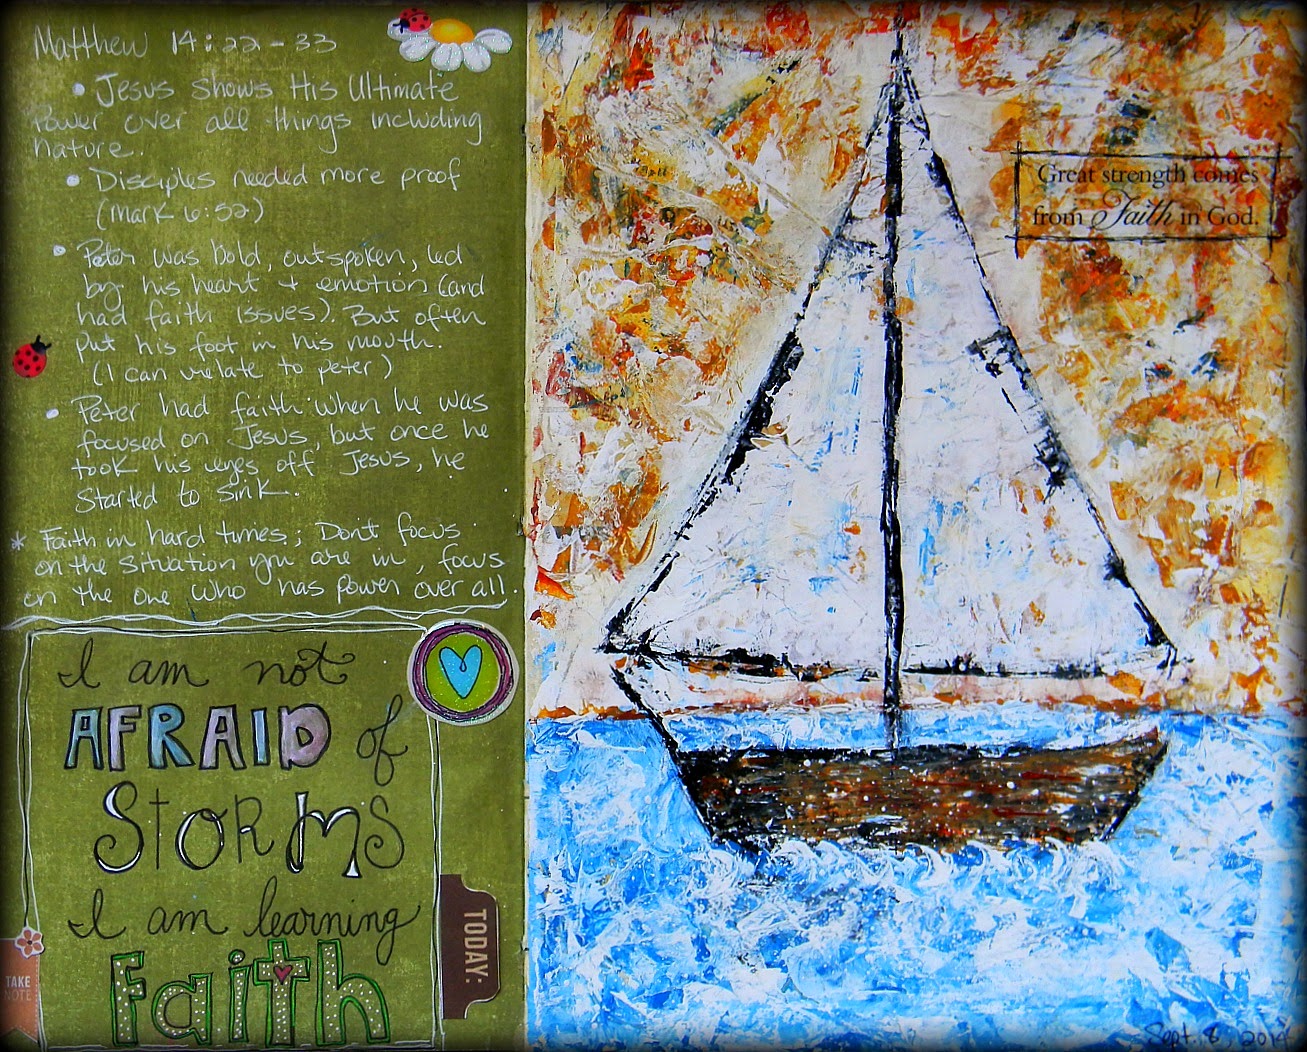 Matthew 14:22-33
• Jesus shows His Ultimate
Power over all things including
nature.
• Disciples needed more proof
(Mark 6:52)
• Peter was bold, outspoken, led
by his heart + emotion (and
had faith issues). But often
put his foot in his mouth.
(I can relate to peter)
• Peter had faith when he was
focused on Jesus, but once he
took his eyes off Jesus, he
started to sink.
* Faith in hard times; Don't focus
on the situation you are in, focus
on the one who has power over all.
I am not
AFRAID of
STORMS
I am learning
Faith
TAKE
NOTE
TODAY:
Great strength comes
from Faith in God.
Sept. 8, 2014